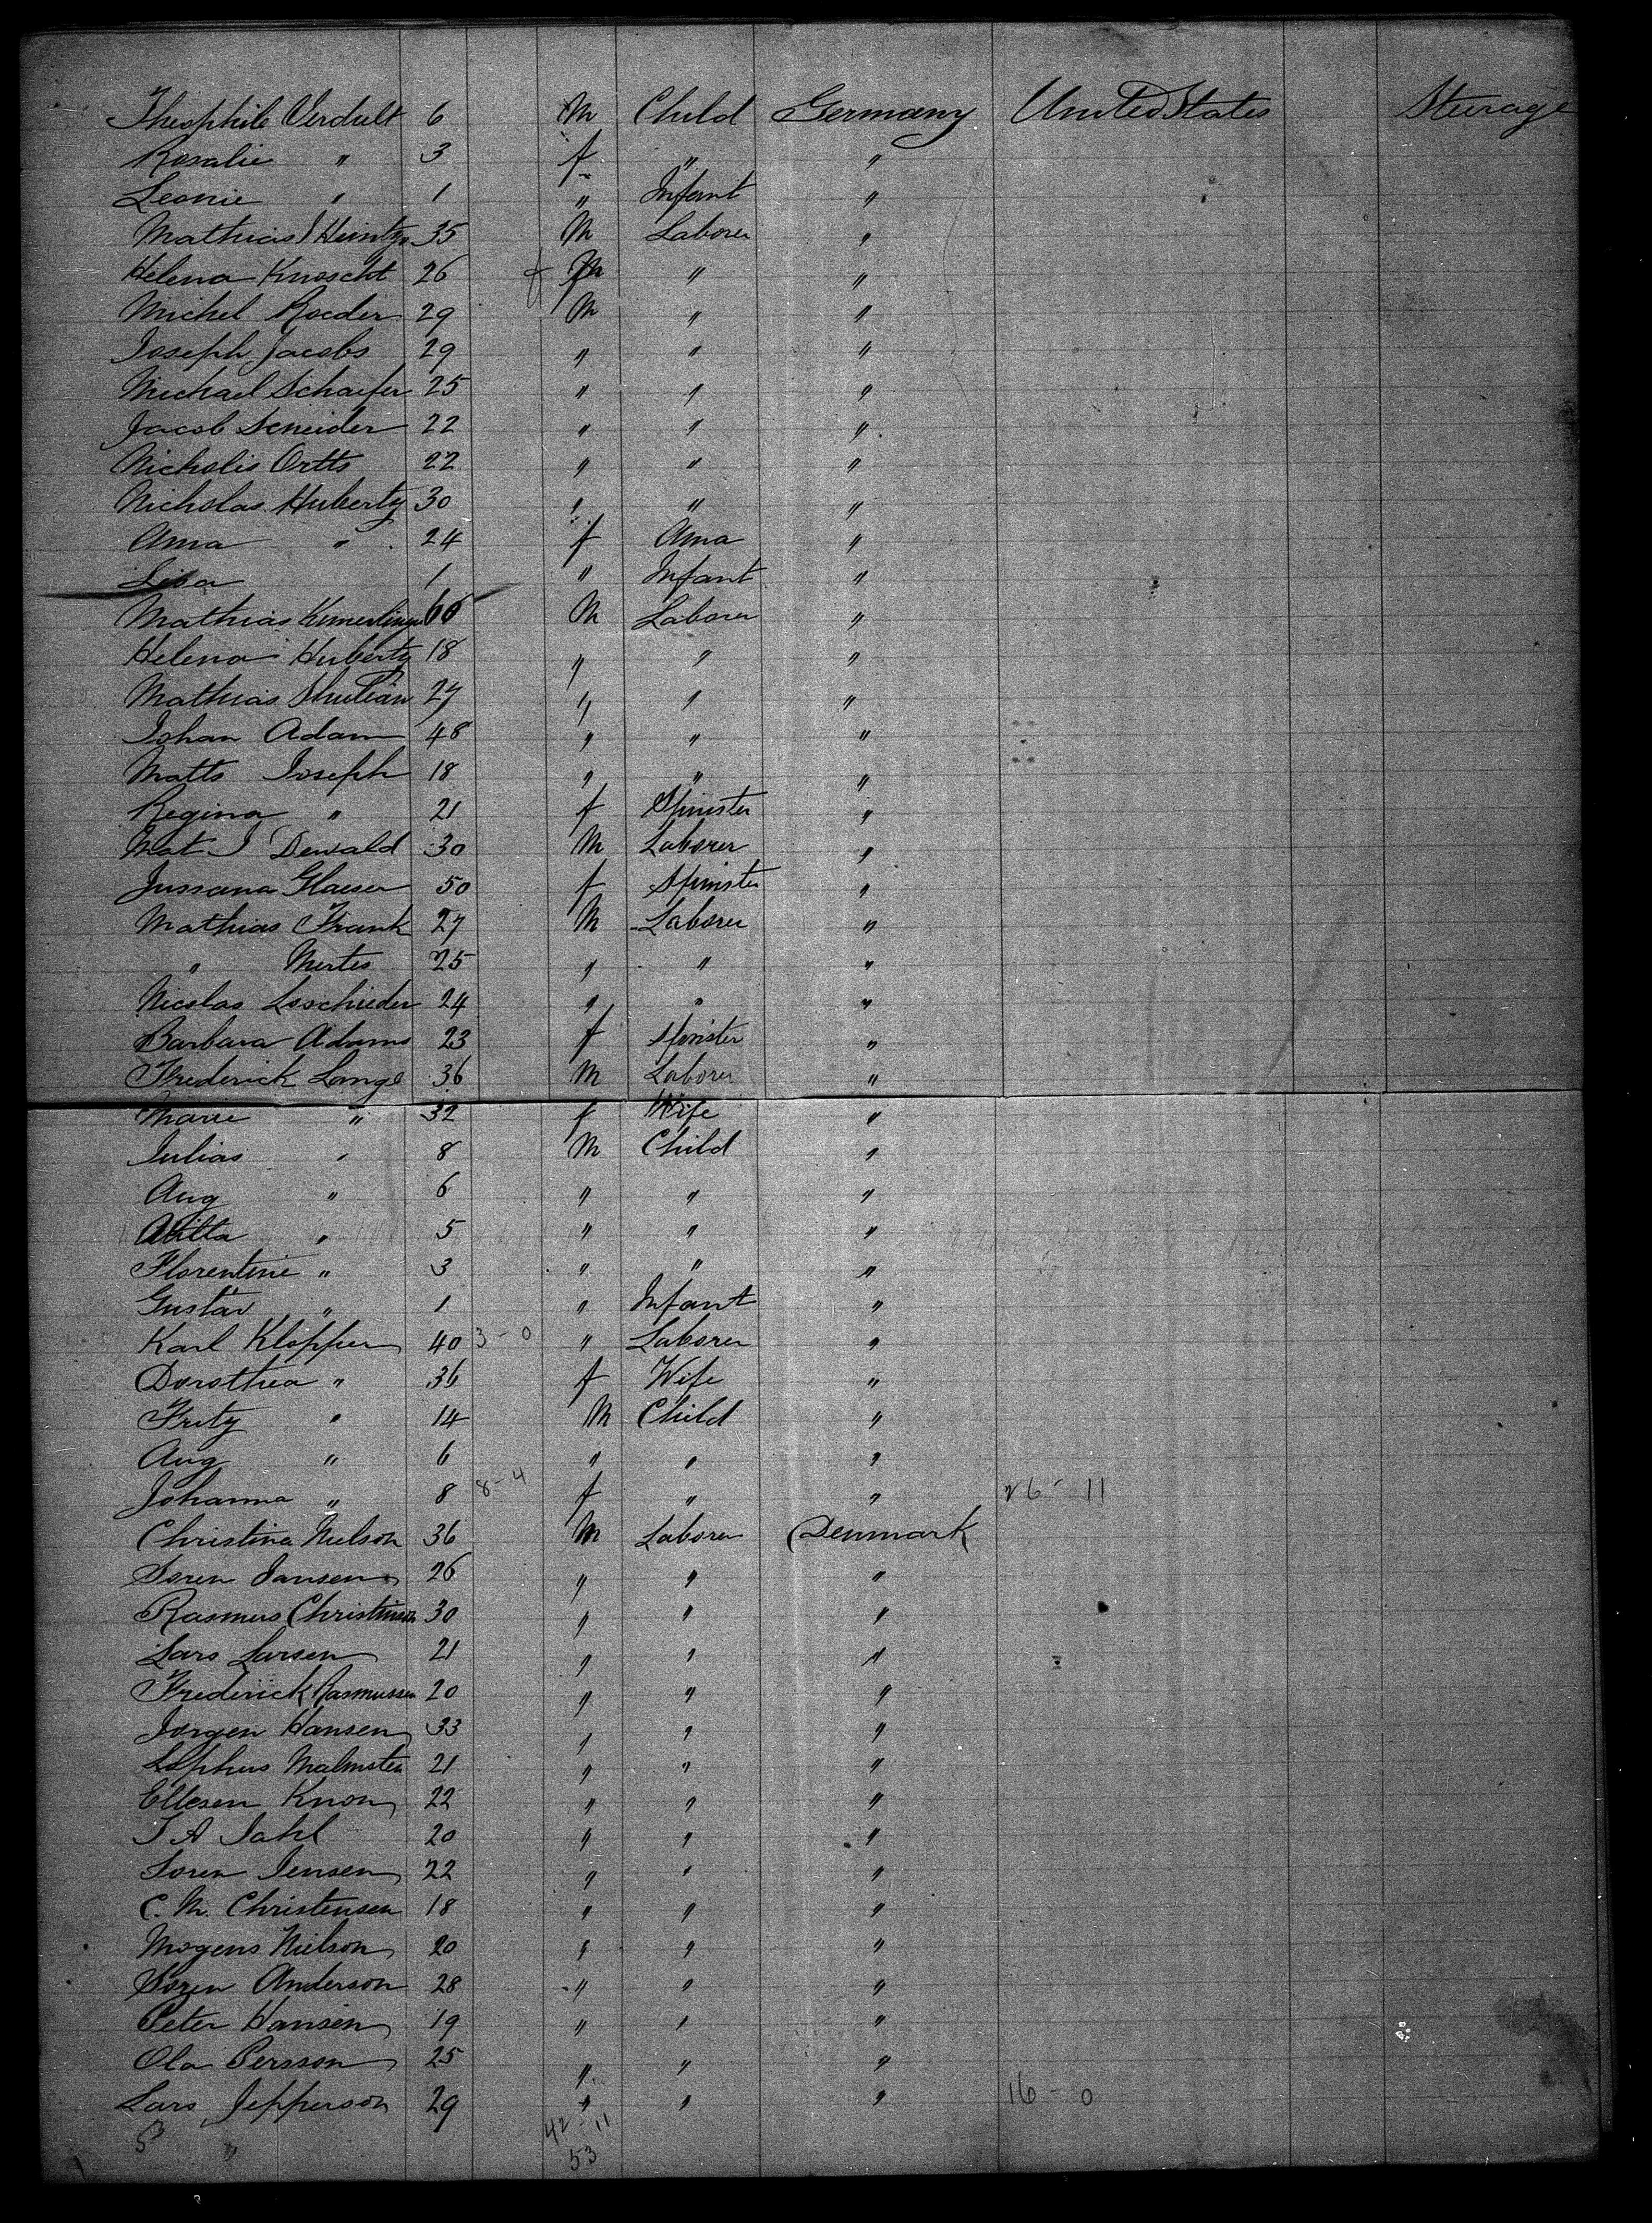 Theophile Verdult 6 M Child Germany United States Sturage
Rosalie " 3 f " "
Leonie " 1 " Infant "
Mathias J Heintz 35 M Laborer "
Helena Knoscht 26 f M " "
Michel Roeder 29 M " "
Joseph Jacobs 29 " " "
Michael Schaefer 25 " " "
Jacob Scneider 22 " " "
Nicholis Ortts 22 " " "
Nicholas Huberty 30 " " "
Anna " 24 f Anna "
Lisa 1 " Infant "
Mathias 60 M Laborer "
Helena Huberty 18 " " "
Mathias 27 " " "
Johan Adam 48 " " "
Matts Joseph 18 " " "
Regina " 21 f Spinster "
Mat J Dewald 30 M Laborer "
Jussana Glaeser 50 f Spinster "
Mathias Frank 27 M Laborer "
" Mertes 25 " " "
Nicolas Loschieder 24 " " "
Barbara Adams 23 f Spinster "
Frederick Lange 36 M Laborer "
Marie " 32 f Wife "
Julias " 8 M Child "
Aug " 6 " " "
" 5 " " "
Florentine " 3 " " "
Gustav " 1 " Infant "
Karl Klopper 40 3-0 " Laborer "
Dorothea " 36 f Wife "
Fritz " 14 M Child "
Aug " 6 " " "
Johanna " 8 8-4 f " " 26-11
Christina Nielson 36 M Laborer Denmark
Soren Jansen 26 " " "
Rasmus Christinsen 30 " " "
Lars Larsen 21 " " "
Frederick Rasmussen 20 " " "
Jorgen Hansen 33 " " "
Malmsten 21 " " "
Ellesen Knon 22 " " "
J A Dahl 20 " " "
Soren Jensen 22 " " "
C. M. Christensen 18 " " "
Mogens Nielson 20 " " "
Soren Anderson 28 " " "
Peter Hansen 19 " " "
Ola Persson 25 " " "
Lars Jepperson 29 " " " 16-0
53 " 42-11
53